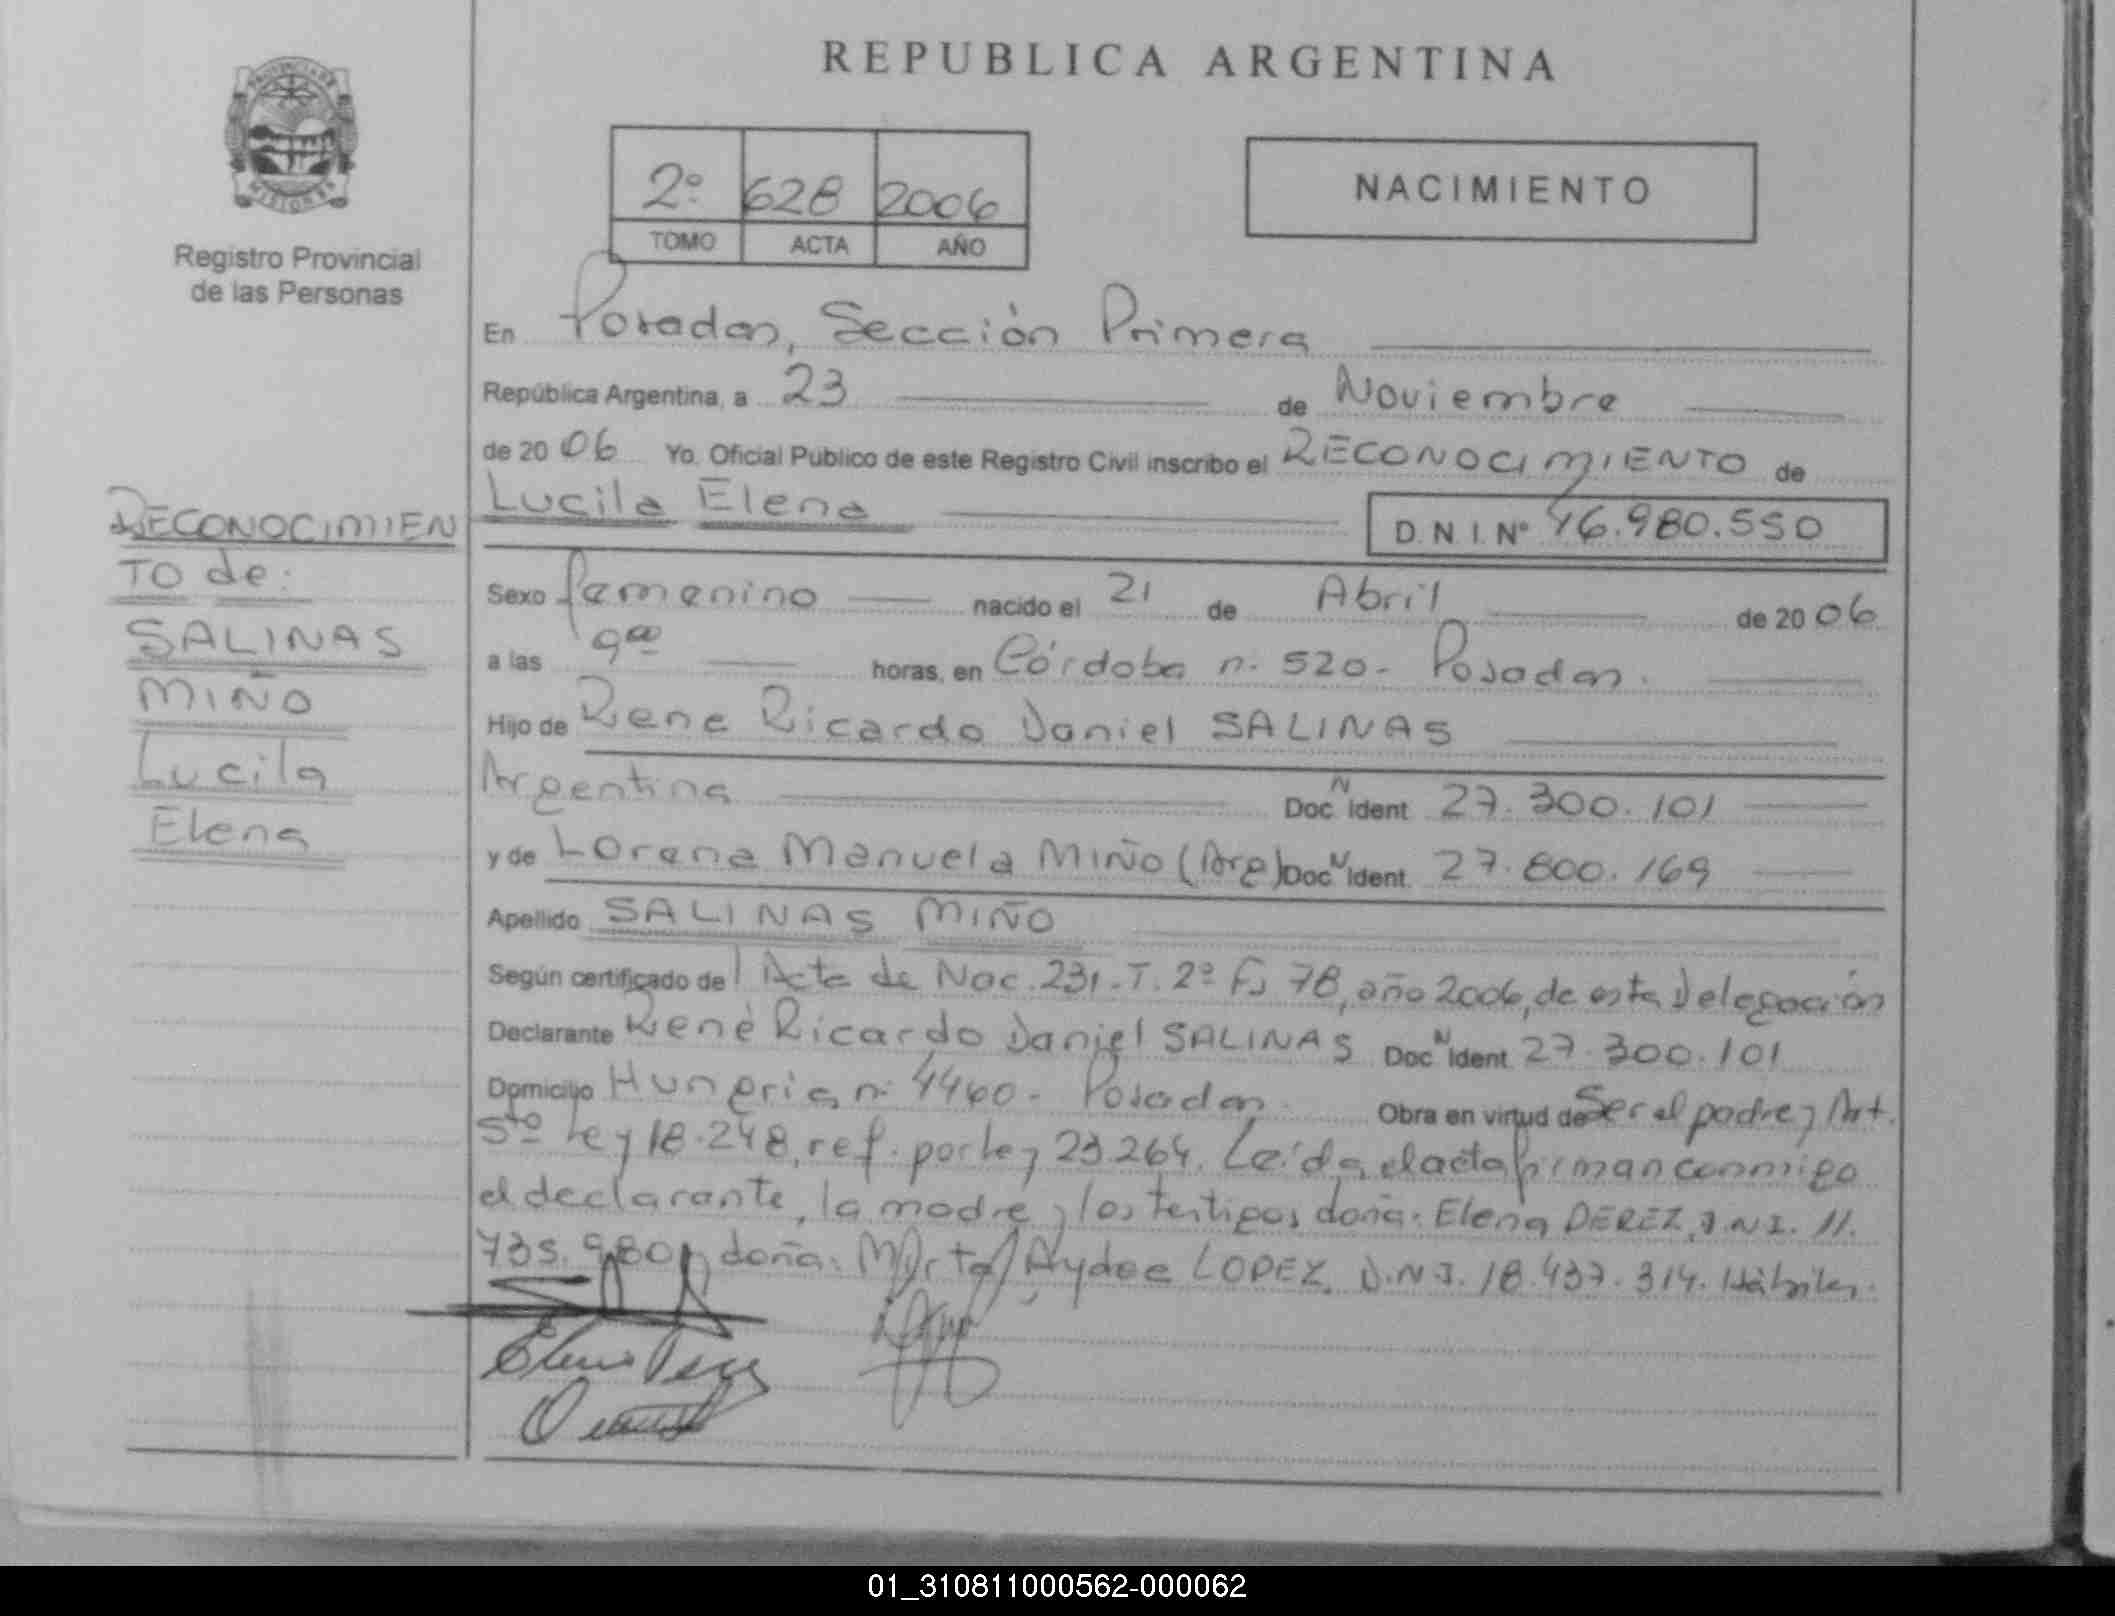 REPUBLICA ARGENTINA
PROVINCIA DE
MISIONES
Registro Provincial
de las Personas
2º 628 2006
TOMO ACTA AÑO
NACIMIENTO
En Posadas, Sección Primera
República Argentina, a 23 de Noviembre
de 2006 Yo, Oficial Público de este Registro Civil inscribo el RECONOCIMIENTO de
Lucila Elena D.N.I. Nº 46.980.550
Sexo femenino nacido el 21 de Abril de 2006
a las 9 00 horas, en Córdoba n. 520 - Posadas.
Hijo de Rene Ricardo Daniel SALINAS
Argentina Doc. N Ident. 27.300.101
y de Lorena Manuela MIÑO (Arg) Doc. N Ident. 27.800.169
Apellido SALINAS MIÑO
Según certificado de Acta de Nac. 231. T. 2º Fº 78, año 2006, de esta Delegación
Declarante René Ricardo Daniel SALINAS Doc. N Ident. 27.300.101
Domicilio Hungria n. 4460 - Posadas. Obra en virtud de Ser el padre y Art.
5to Ley 18.248, ref. por Ley 23.264. Leída el acta firman conmigo
el declarante, la madre y los testigos doña: Elena PEREZ, D.N.I. 11.
735.980 y doña: Mirta Aydee LOPEZ, D.N.I. 18.437.314. Hábiles.
Elena Perez
RECONOCIMIEN
TO de:
SALINAS
MIÑO
Lucila
Elena
01_310811000562-000062